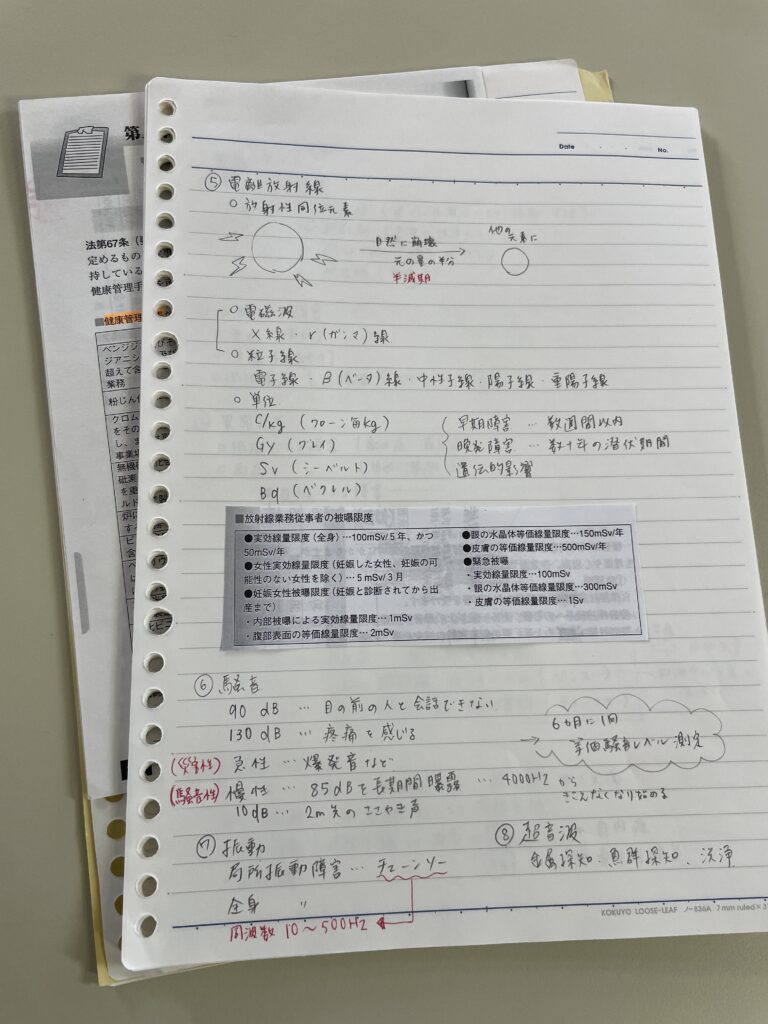 第
法第67条
定めるもの
持している
健康管理手
■健康管理
ベンジジ
ジアニシ
超えて含
業務
粉じん作
クロム
をその
し、ま
事業場
無機
砒素
を重
ルド
炉に
すべ
Date ・ ・ No.
⑤ 電離放射線
○ 放射性同位元素
自然に崩壊
元の量の半分
半減期
他の元素に
○ 電磁波
X線・γ(ガンマ)線
○ 粒子線
電子線・β(ベータ)線・中性子線・陽子線・重陽子線
○ 単位
C/kg (クローン毎kg)
Gy (グレイ)
Sv (シーベルト)
Bq (ベクレル)
早期障害 … 数週間以内
晩発障害 … 数十年の潜伏期間
遺伝的影響
■放射線業務従事者の被曝限度
●実効線量限度(全身)…100mSv/5年、かつ
50mSv/年
●女性実効線量限度(妊娠した女性、妊娠の可
能性のない女性を除く)…5mSv/3月
●妊娠女性被曝限度(妊娠と診断されてから出
産まで)
・内部被曝による実効線量限度…1mSv
・腹部表面の等価線量限度…2mSv
●眼の水晶体等価線量限度…150mSv/年
●皮膚の等価線量限度…500mSv/年
●緊急被曝
・実効線量限度…100mSv
・眼の水晶体等価線量限度…300mSv
・皮膚の等価線量限度…1Sv
⑥ 騒音
90 dB … 目の前の人と会話できない
130 dB … 疼痛を感じる
(災害性) 急性 … 爆発音など
(騒音性) 慢性 … 85dBを長期間曝露 … 4000Hzから
きこえなくなり始める
10dB … 2m先のささやき声
→ 6カ月に1回
等価騒音レベル測定
⑦ 振動
局所振動障害 … チェーンソー
全身 〃
周波数 10～500Hz
⑧ 超音波
金属探知、魚群探知、洗浄
KOKUYO LOOSE-LEAF ノ-836A 7mm ruled×3